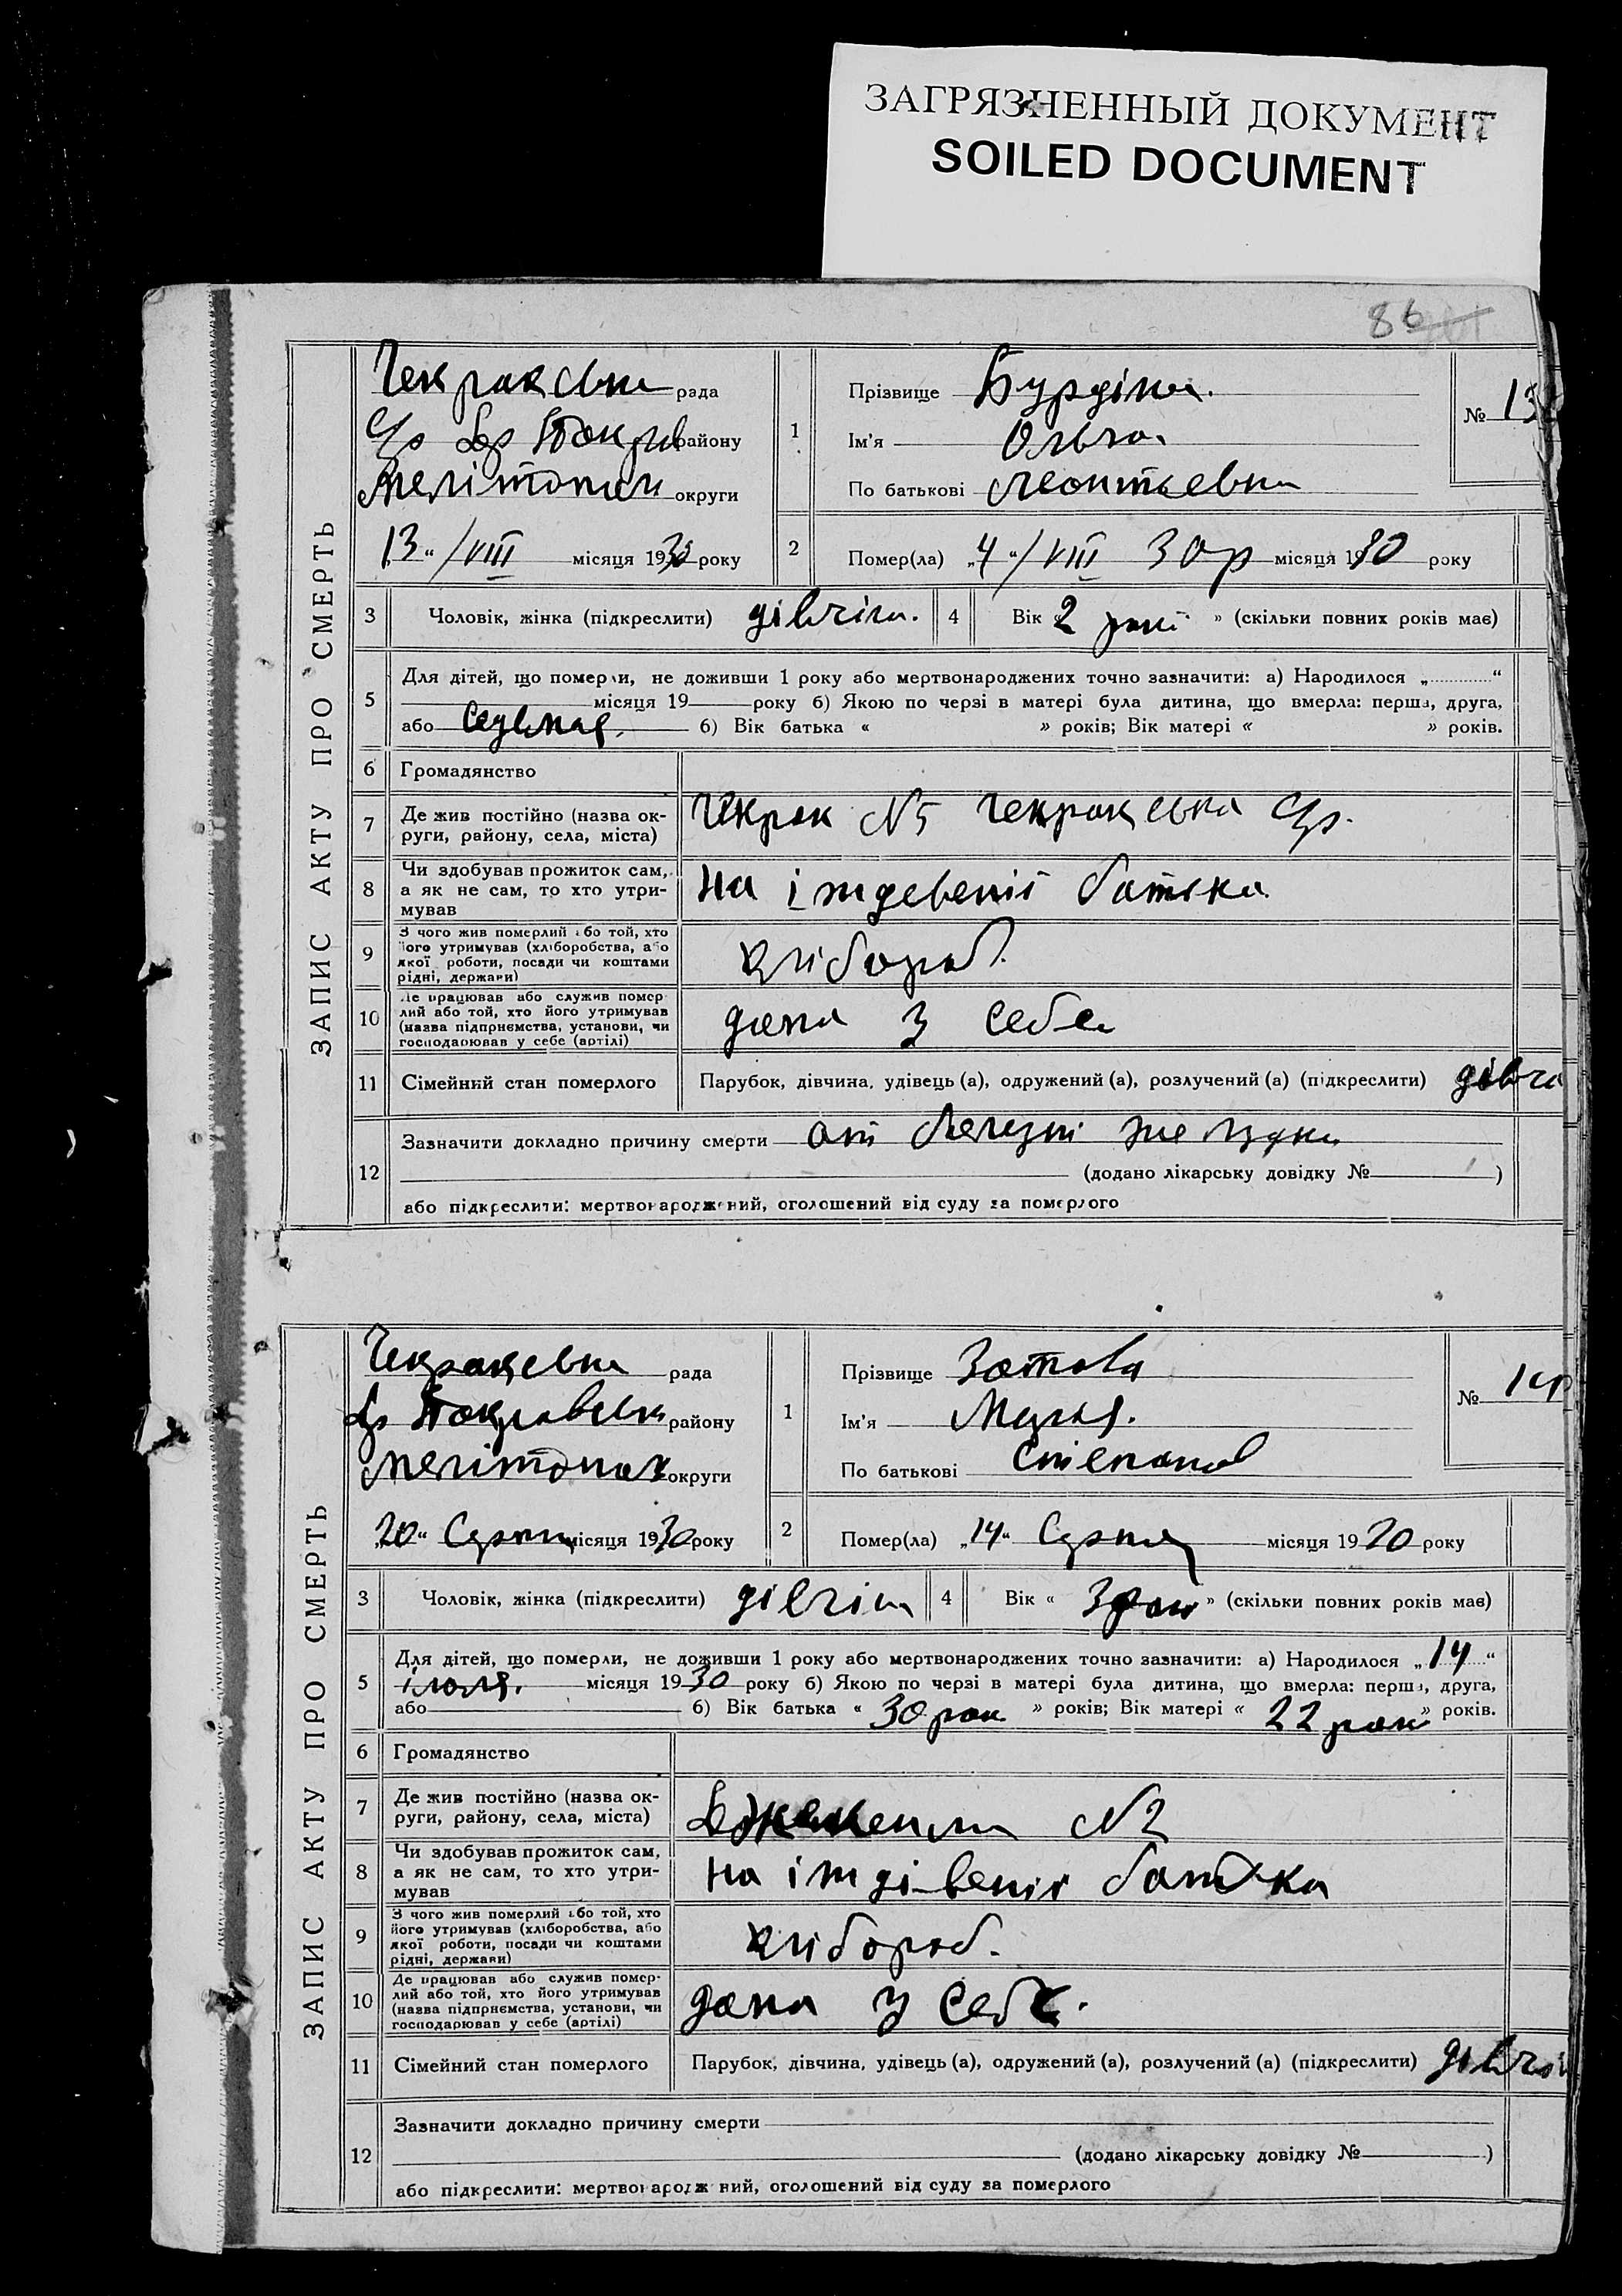 ЗАГРЯЗНЕННЫЙ ДОКУМЕНТ
SOILED DOCUMENT
86
ЗАПИС АКТУ ПРО СМЕРТЬ
рада
району
округи
13 "/VIII місяця 1930 року
1
Прізвище Бурдіна.
Ім'я Ольга.
По батькові Леонтьевна
№ 13
2
Помер(ла) „4“/VIII 30 р місяця 1930 року
3 Чоловік, жінка (підкреслити) дівчина.
4 Вік « 2 роки » (скільки повних років має)
5 Для дітей, що померли, не доживши 1 року або мертвонароджених точно зазначити: а) Народилося „ “
місяця 19 року б) Якою по черзі в матері була дитина, що вмерла: перша, друга,
або Седьмая. б) Вік батька « » років; Вік матері « » років.
6 Громадянство
7 Де жив постійно (назва ок-
руги, району, села, міста)
Чекрак №5
8 Чи здобував прожиток сам,
а як не сам, то хто утри-
мував
на батька
9 З чого жив померлий або той, хто
його утримував (хліборобства, або
якої роботи, посади чи коштами
рідні, держави)
хлібороб.
10 Де працював або служив помер-
лий або той, хто його утримував
(назва підприємства, установи, чи
господарював у себе (артілі)
дома у себе
11 Сімейний стан померлого
Парубок, дівчина, удівець (а), одружений (а), розлучений (а) (підкреслити)
12 Зазначити докладно причину смерти от желудка
(додано лікарську довідку № )
або підкреслити: мертвонароджений, оголошений від суду за померлого
ЗАПИС АКТУ ПРО СМЕРТЬ
рада
району
округи
„20“ Серпня місяця 1930 року
1
Прізвище Зотова
Ім'я
По батькові Степанов
№ 14
2
Помер(ла) „14“ Серпня місяця 1930 року
3 Чоловік, жінка (підкреслити) дівчина
4 Вік « » (скільки повних років має)
5 Для дітей, що померли, не доживши 1 року або мертвонароджених точно зазначити: а) Народилося „14“
іюля. місяця 1930 року б) Якою по черзі в матері була дитина, що вмерла: перша, друга,
або б) Вік батька « 30 рок » років; Вік матері « 22 рок » років.
6 Громадянство
7 Де жив постійно (назва ок-
руги, району, села, міста)
№2
8 Чи здобував прожиток сам,
а як не сам, то хто утри-
мував
на батька
9 З чого жив померлий або той, хто
його утримував (хліборобства, або
якої роботи, посади чи коштами
рідні, держави)
хлібороб.
10 Де працював або служив помер-
лий або той, хто його утримував
(назва підприємства, установи, чи
господарював у себе (артілі)
дома у себе.
11 Сімейний стан померлого
Парубок, дівчина, удівець (а), одружений (а), розлучений (а) (підкреслити)
12 Зазначити докладно причину смерти
(додано лікарську довідку № )
або підкреслити: мертвонароджений, оголошений від суду за померлого